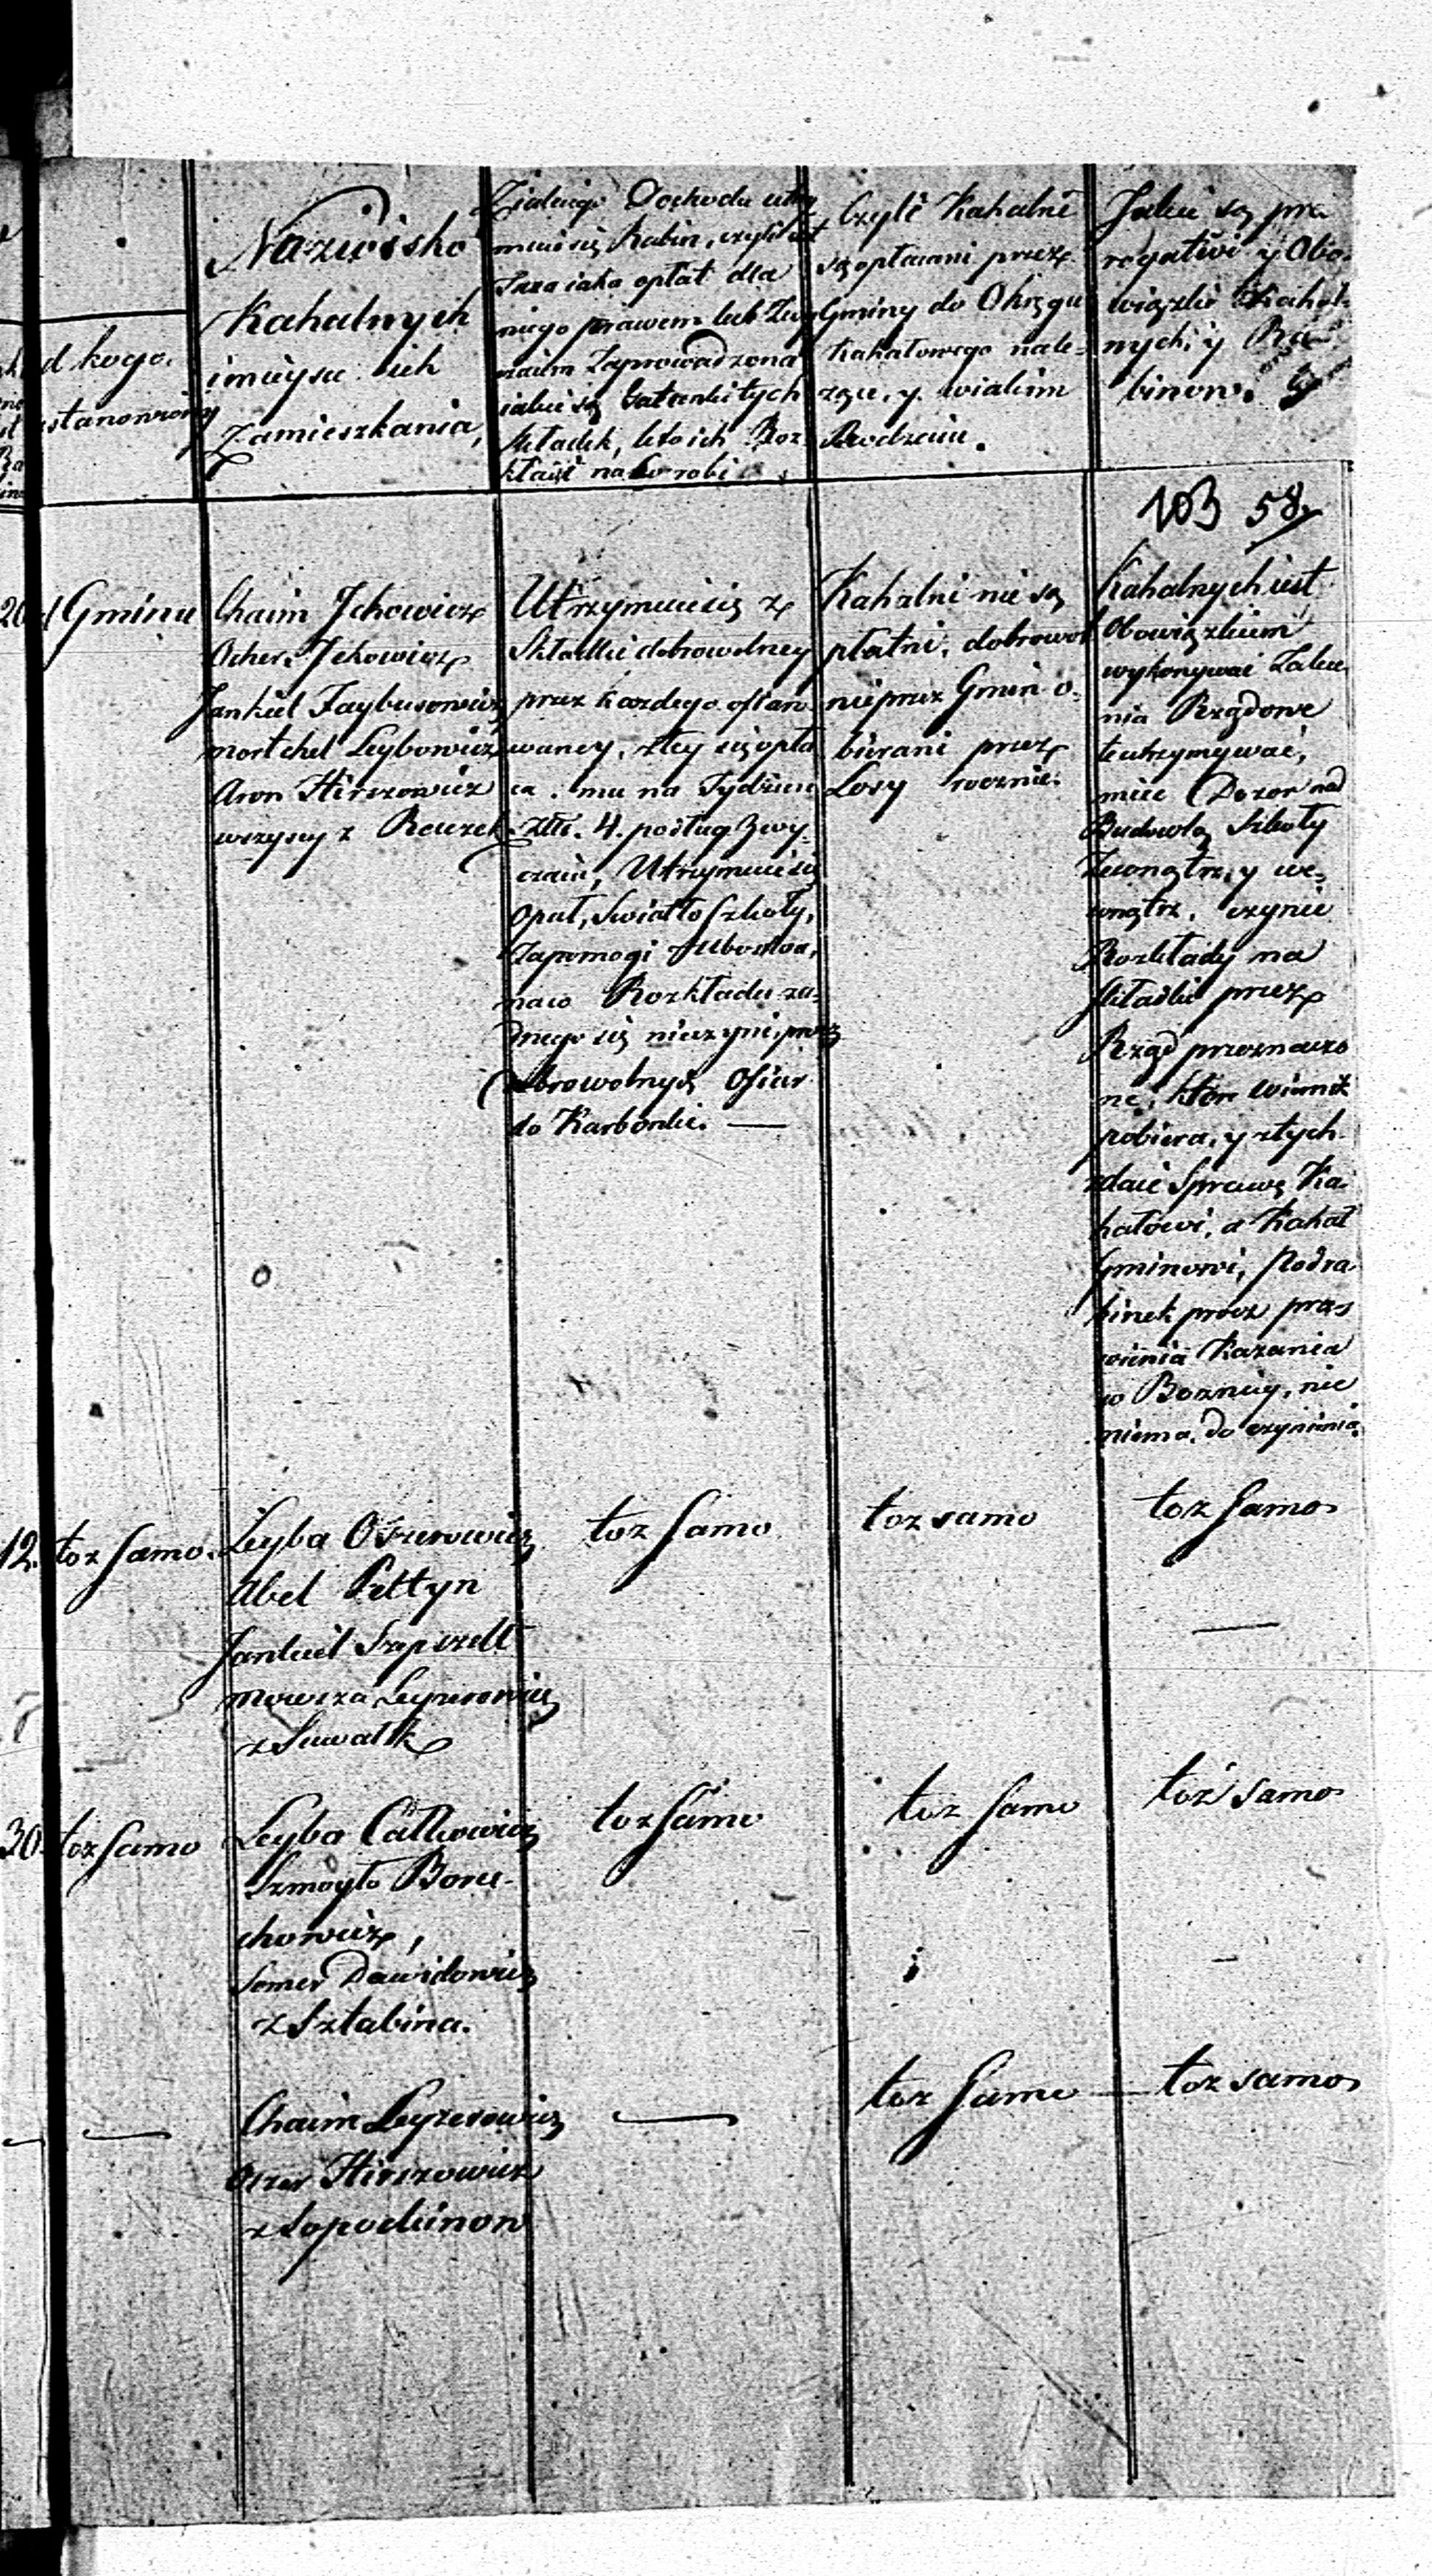 d kogo.
ustanowiony
Nazwisko
Kahalnych
i mieysce ich
Zamieszkania,
Z iakiego Dochodu utrzy
muie się Rabin, czyli iest
Taxa iaka opłat dla
niego prawem lub Zwy
czaiem Zaprowadzona
iakie są Gatunki tych
składek, kto ich Roz-
kład na kogo robi
Czyli Kahalni
są opłacani przez
Gminy do Okręgu
Kahałowego nale-
żące, y w iakim
Rodzaiu.
Jakie są pre
rogatiwi y Obo-
wiązki Kahal-
nych y Ra-
binow.
103 58
20 od Gminu
Chaim Jchowicz
Ocher Jckowicz
Jankiel Faybusowicz
Mortchel Leybowicz
Aron Hirszowicz
wszyscy z Raczek
Utrzymuie się z
Składki dobrowolney
przez każdego ofiaro
waney, z tey się opła
ca mu na Tydzień
Złt. 4. podług Zwy-
czaiu, Utrzymuie się
Opał, Swiatło Szkoły,
Zapomogi Ubostwa,
na co Rozkładu ża-
dnego się nie czyni, przez
Dobrowolnych Ofiar
do Karbonki. —
Kahalni nie są
płatni, dobrowol
nie przez Gmin o-
bierani przez
Losy rocznie.
Kahalnych iest
Obowiązkiem
wykonywać Zalece
nia Rządowe
te utrzymywać,
mieć Dozor nad
Budowlą Szkoły
Zewnątrz, y we-
wnątrz, czynić
Rozkłady na
składki przez
Rząd przeznaczo
ne, które Wiernik
pobiera, y z tych
zdaie Sprawę Ka-
hałowi, a Kahał
Gminowi, Podra
binek prócz pra
wienia Kazania
w Boznicy, nic
niema do czynienia
12. toz Samo.
Leyba Oszerowicz
Abel Pełtyn
Jankiel Szpszelt
Mowsza Leyzerowicz
z Suwałk
toz Samo
toz samo
toz Samo
—
30. toz Samo
Leyba Całkowicz
Szmoyło Boru-
chowicz,
Somer Dawidowicz
z Sztabina.
toz Samo
toz Samo
toż samo
—
—
Chaim Leyzerowicz
Oszer Hirszowicz
z Sopockinow
—
toz Samo
— toz samo